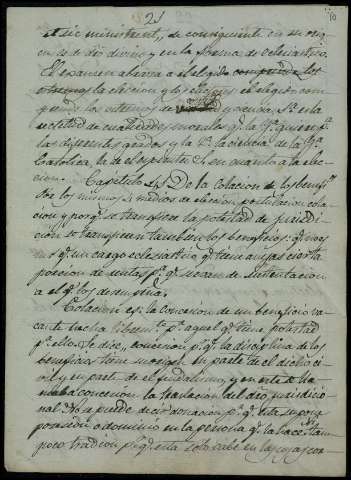 21
10
et sic ministrent, de consiguiente en su origen
es de dro divino y en la forma de eclesiastico.
El examen abarca al elegido
la eleccion y los electores; el elegido com
prende los internos de y ocurre. Se en la
rectitud de cualidades morales qe. la Yga. quiere pa.
los diferentes grados y la 2a. la ciencia de la Yga.
Catolica, la de el aspirante &. en cuanto a la elec
cion. Capitulo 4o. De la Colacion de los benefos.
Por los mismos medios de eleccion postulacion cola
cion y porqe. se transfiere la potestad de jurisdic
cion se transfieren tambien los beneficios: qe. no es
mas qe. un cargo eclesiastico qe. tiene anejas cierta
porcion de rentas pa. qe. sirvan de sustentacion
a el qe. los desempeña.
Colacion es: la concesion de un beneficio va
cante hecha liberemte. pr. aquel qe. tiene potestad
pa. ello. Se dice, concesion pr. qe. la disciplina de los
beneficios tiene su origen en parte de el dicho ci
vil y en parte de el feudalismo, y en este se lla
maba concesion la traslacion del dro jurisdicio
nal. No se puede decir donacion pr. qe. esta supone
posesion o dominio en la persona qe. la hace; tam
poco tradicion pr. qe. esta solo cabe en las cosas cor=